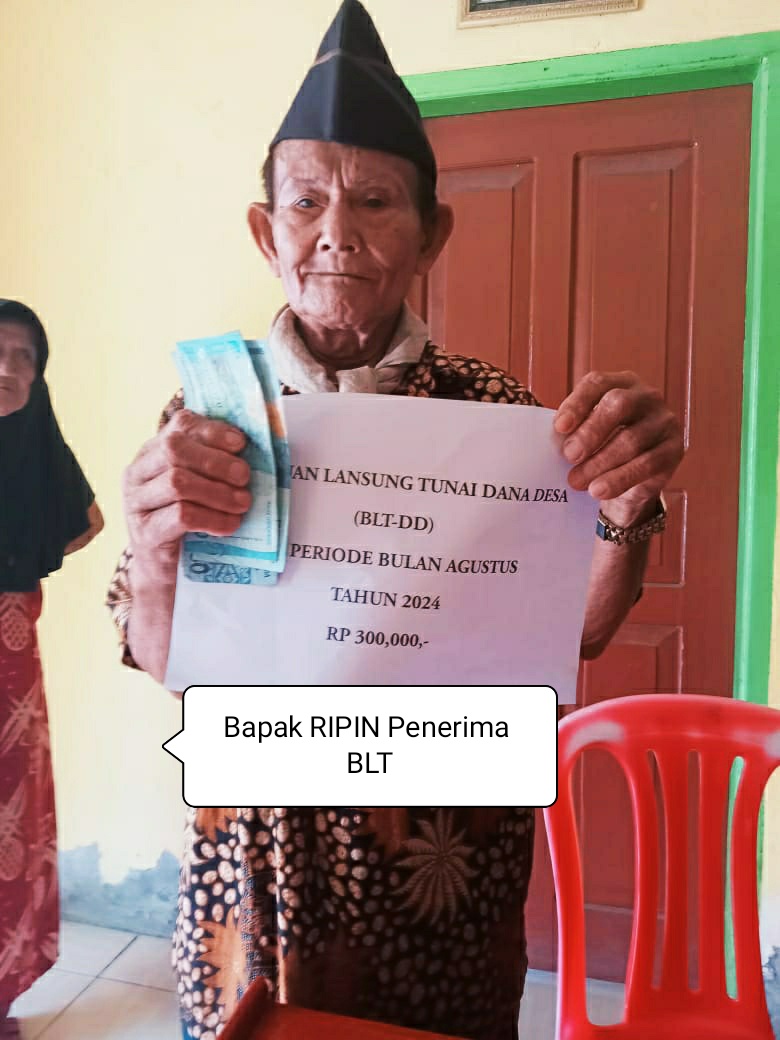 UAN LANSUNG TUNAI DANA DESA
(BLT-DD)
PERIODE BULAN AGUSTUS
TAHUN 2024
RP 300,000,-
Bapak RIPIN Penerima
BLT